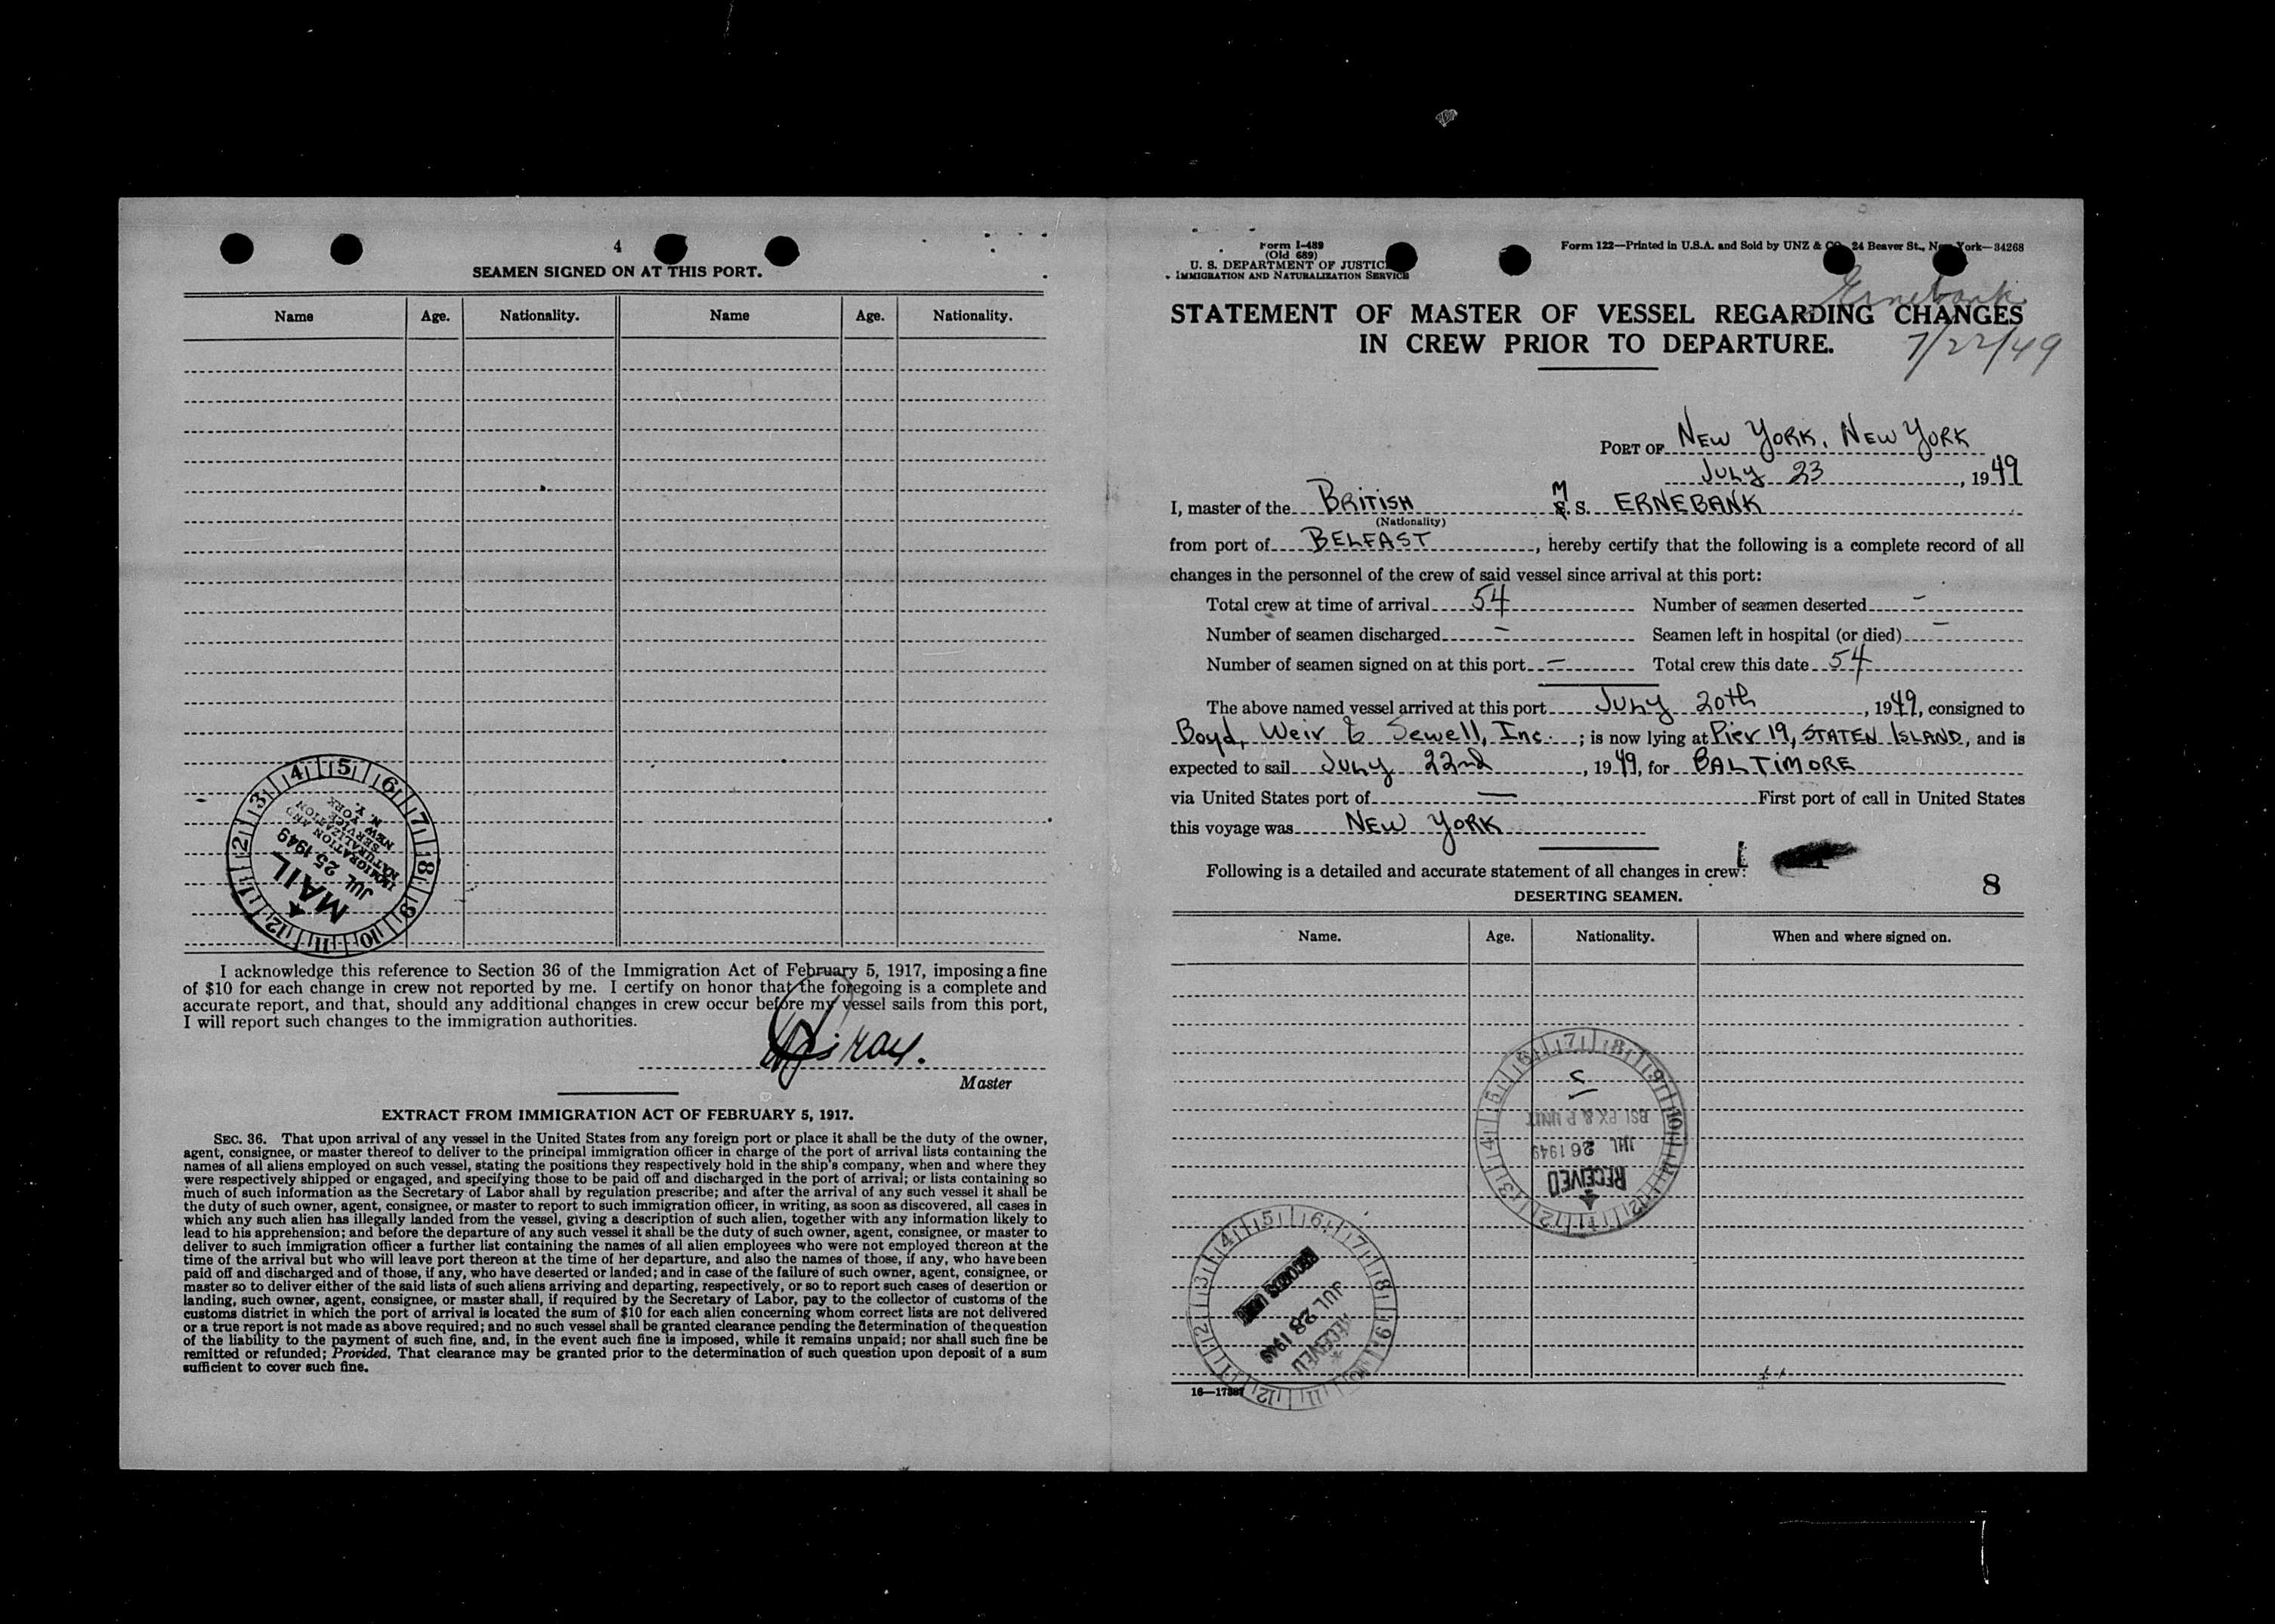 4
SEAMEN SIGNED ON AT THIS PORT.
Name Age. Nationality. Name Age. Nationality.
MAIL
JUL 25 1949
IMMIGRATION AND
NATURALIZATION
SERVICE
NEW YORK
N. Y.
I acknowledge this reference to Section 36 of the Immigration Act of February 5, 1917, imposing a fine
of $10 for each change in crew not reported by me. I certify on honor that the foregoing is a complete and
accurate report, and that, should any additional changes in crew occur before my vessel sails from this port,
I will report such changes to the immigration authorities.
Master
EXTRACT FROM IMMIGRATION ACT OF FEBRUARY 5, 1917.
SEC. 36. That upon arrival of any vessel in the United States from any foreign port or place it shall be the duty of the owner,
agent, consignee, or master thereof to deliver to the principal immigration officer in charge of the port of arrival lists containing the
names of all aliens employed on such vessel, stating the positions they respectively hold in the ship's company, when and where they
were respectively shipped or engaged, and specifying those to be paid off and discharged in the port of arrival; or lists containing so
much of such information as the Secretary of Labor shall by regulation prescribe; and after the arrival of any such vessel it shall be
the duty of such owner, agent, consignee, or master to report to such immigration officer, in writing, as soon as discovered, all cases in
which any such alien has illegally landed from the vessel, giving a description of such alien, together with any information likely to
lead to his apprehension; and before the departure of any such vessel it shall be the duty of such owner, agent, consignee, or master to
deliver to such immigration officer a further list containing the names of all alien employees who were not employed thereon at the
time of the arrival but who will leave port thereon at the time of her departure, and also the names of those, if any, who have been
paid off and discharged and of those, if any, who have deserted or landed; and in case of the failure of such owner, agent, consignee, or
master so to deliver either of the said lists of such aliens arriving and departing, respectively, or so to report such cases of desertion or
landing, such owner, agent, consignee, or master shall, if required by the Secretary of Labor, pay to the collector of customs of the
customs district in which the port of arrival is located the sum of $10 for each alien concerning whom correct lists are not delivered
or a true report is not made as above required; and no such vessel shall be granted clearance pending the determination of the question
of the liability to the payment of such fine, and, in the event such fine is imposed, while it remains unpaid; nor shall such fine be
remitted or refunded; Provided, That clearance may be granted prior to the determination of such question upon deposit of a sum
sufficient to cover such fine.
Form I-489
(Old 689)
U. S. DEPARTMENT OF JUSTICE
IMMIGRATION AND NATURALIZATION SERVICE
Form 122—Printed in U.S.A. and Sold by UNZ & CO. 24 Beaver St., New York—34268
Ernebank
STATEMENT OF MASTER OF VESSEL REGARDING CHANGES
IN CREW PRIOR TO DEPARTURE.
7/22/49
PORT OF NEW YORK, NEW YORK
JULY 23, 1949
I, master of the BRITISH M S. ERNEBANK
(Nationality)
from port of BELFAST, hereby certify that the following is a complete record of all
changes in the personnel of the crew of said vessel since arrival at this port:
Total crew at time of arrival 54 Number of seamen deserted -
Number of seamen discharged - Seamen left in hospital (or died) -
Number of seamen signed on at this port - Total crew this date 54
The above named vessel arrived at this port JULY 20th, 1949, consigned to
Boyd, Weir & Sewell, Inc. ; is now lying at Pier 19, STATEN ISLAND, and is
expected to sail JULY 22nd, 1949, for BALTIMORE
via United States port of — First port of call in United States
this voyage was NEW YORK
Following is a detailed and accurate statement of all changes in crew:
8
DESERTING SEAMEN.
Name. Age. Nationality. When and where signed on.
RECEIVED
JUL 26 1949
BSI EX & P UNIT
RECEIVED
JUL 28 1949